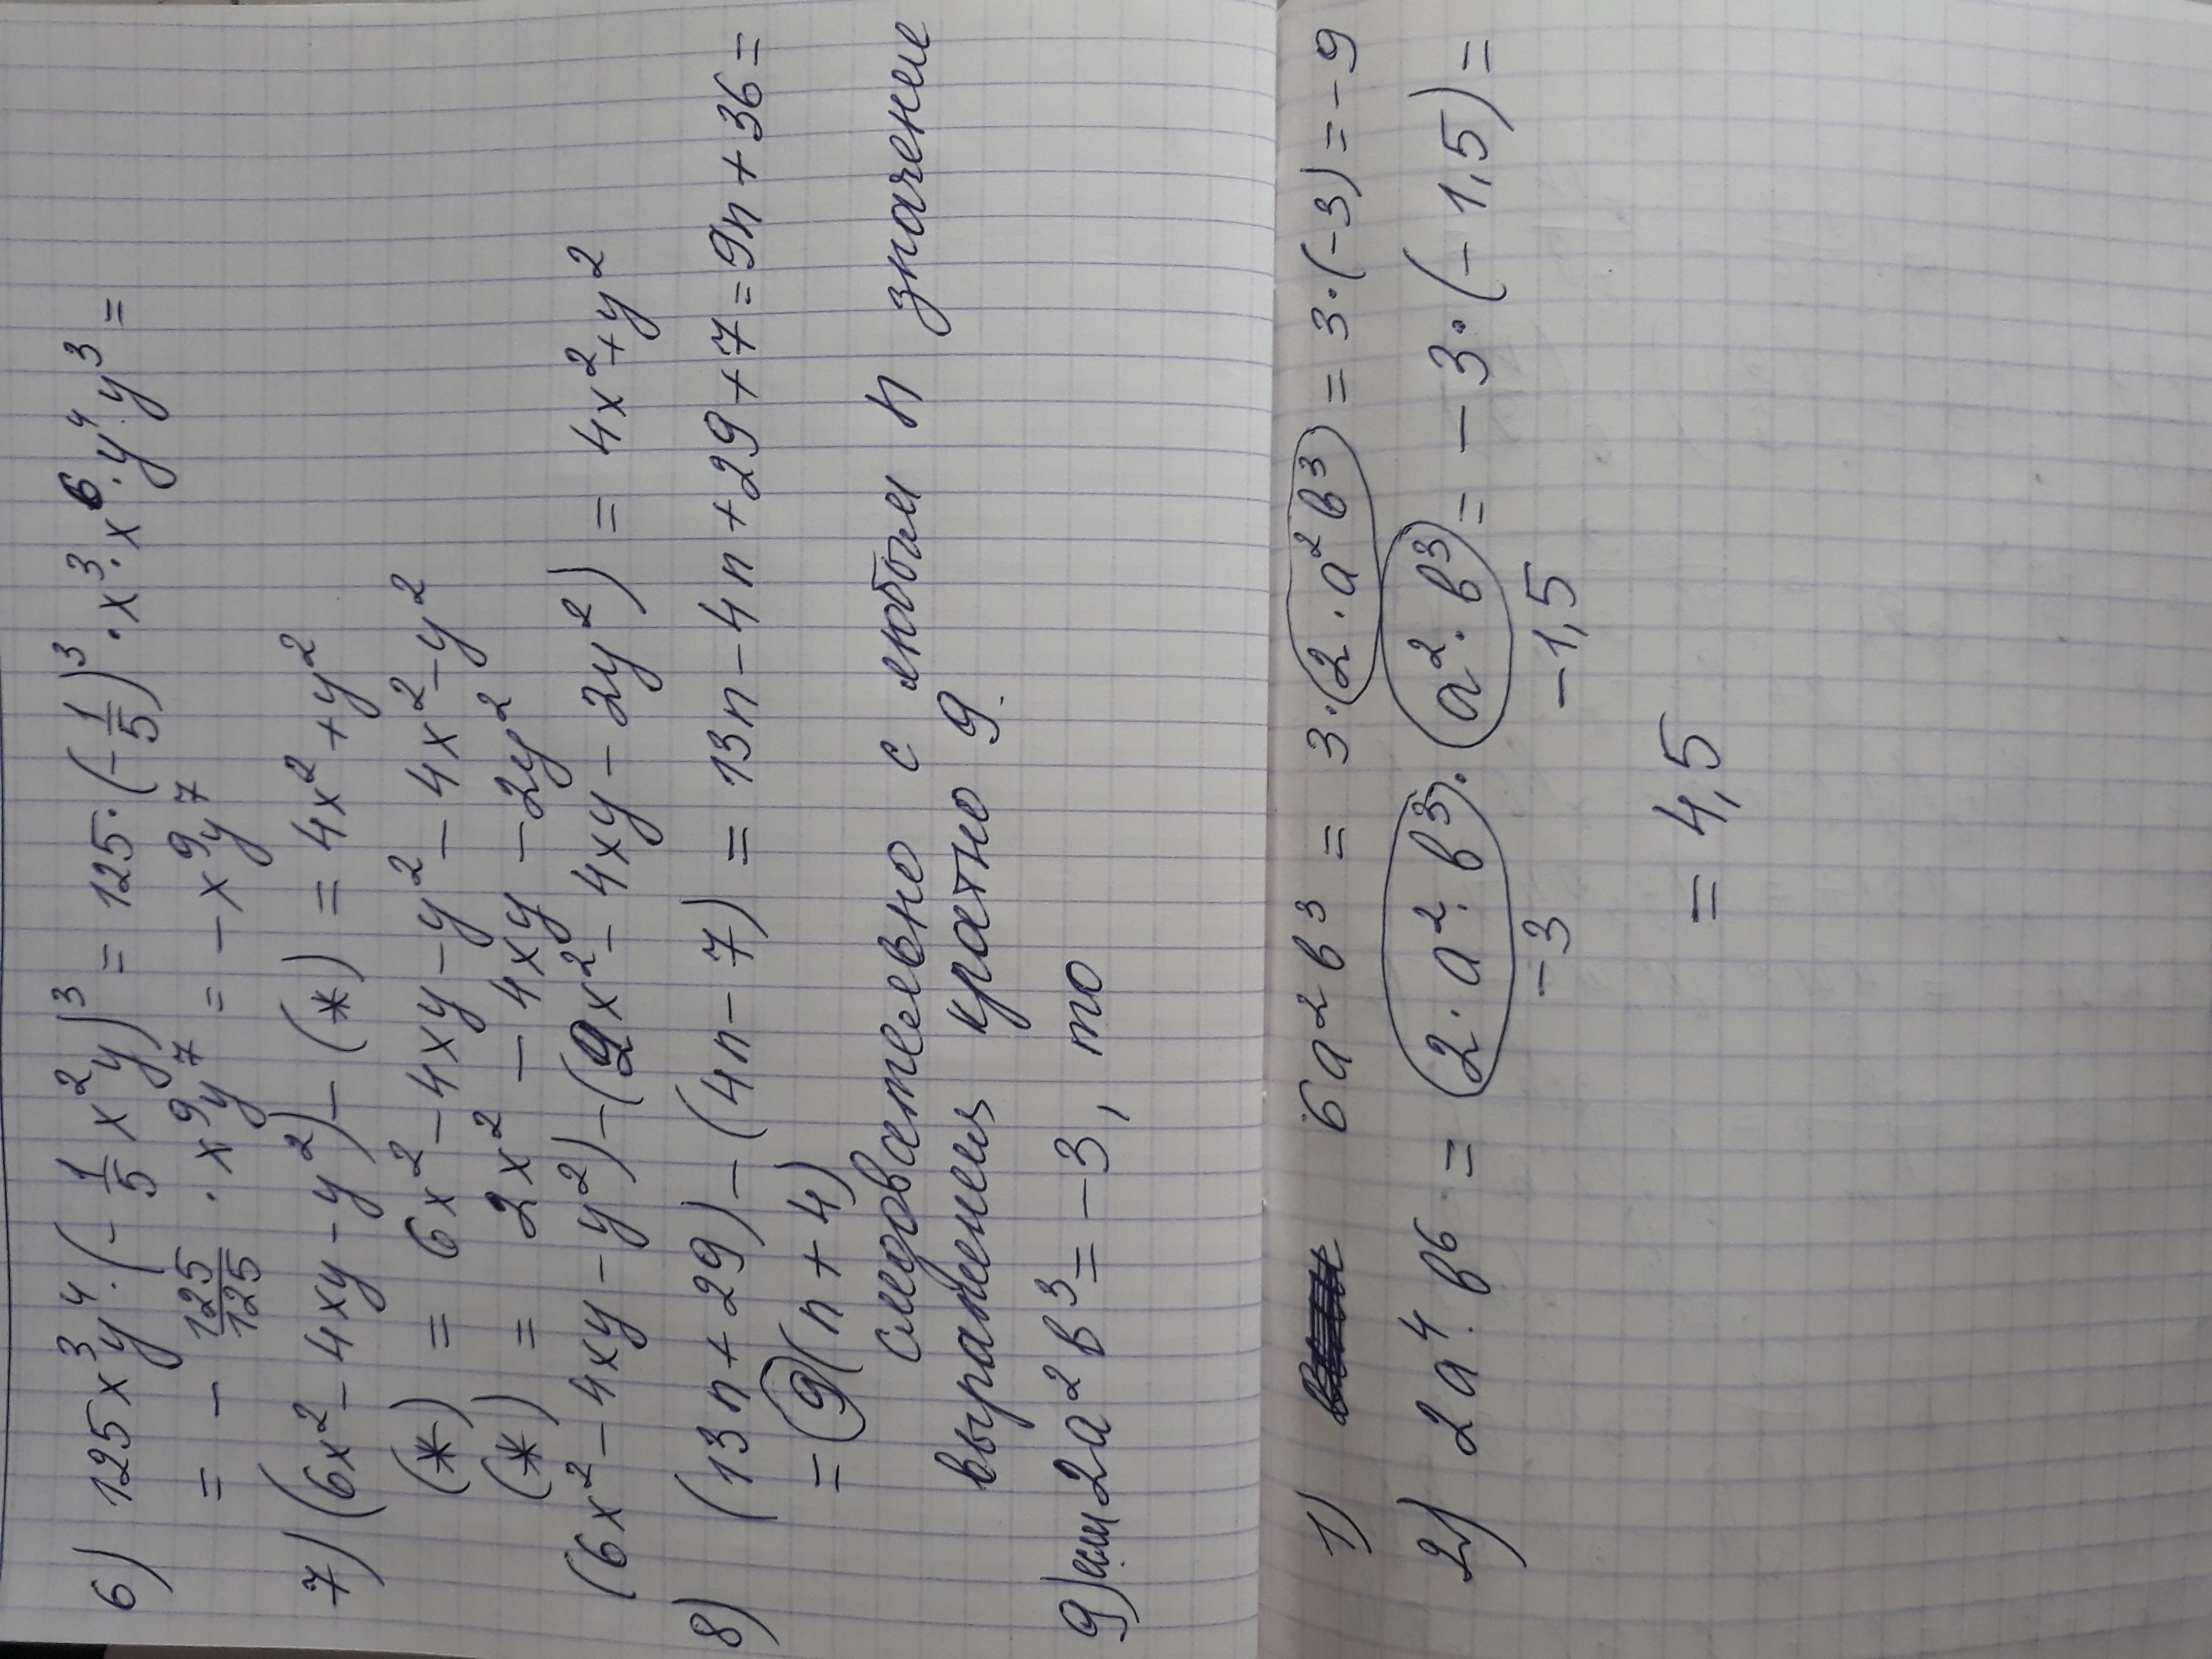 6) 125x³y⁴·(-1/5 x²y)³ = 125·(-1/5)³·x³·x⁶·y⁴y³ =
= - 125/125 · x⁹y⁷ = -x⁹y⁷
7) (6x²-4xy-y²)-(*) = 4x²+y²
(*) = 6x²-4xy-y²-4x²-y²
(*) = 2x² -4xy -2y²
(6x²-4xy-y²)-(2x²-4xy-2y²) = 4x²+y²
8) (13n+29)-(4n-7) = 13n-4n+29+7=9n+36=
=9(n+4)
следовательно с любым n значение
выражения кратно 9.
9) если 2a²в³=-3, то
1) 6a²в³ = 3·(2·a²в³) = 3·(-3)=-9
2) 2a⁴·в⁶ = (2·a²·в³)·(a²·в³) = -3·(-1,5)=
-3 -1,5
= 4,5